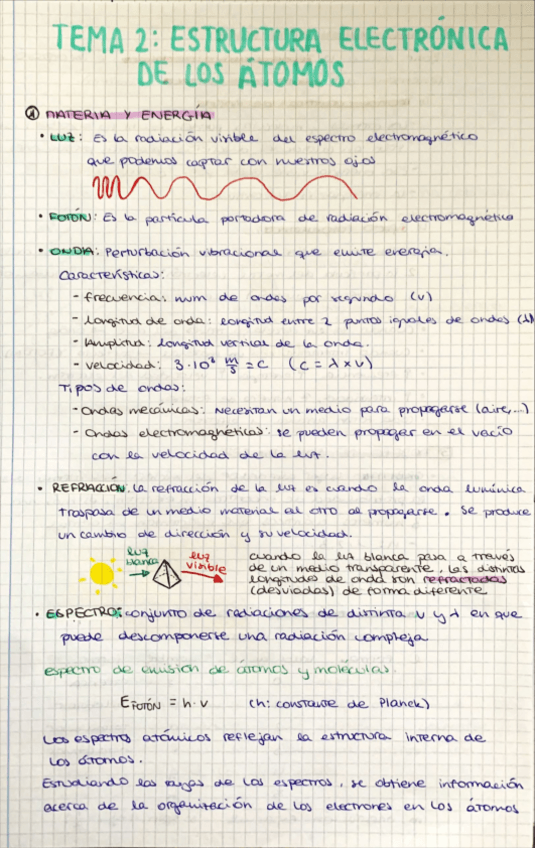 TEMA 2: ESTRUCTURA ELECTRÓNICA
DE LOS ÁTOMOS
① MATERIA Y ENERGÍA
• LUZ: Es la radiación visible del espectro electromagnético
que podemos captar con nuestros ojos
• FOTÓN: Es la partícula portadora de radiación electromagnética
• ONDA: Perturbación vibracional que emite energía.
Características:
- frecuencia: num de ondas por segundo (ν)
- Longitud de onda: longitud entre 2 puntos iguales de ondas (λ)
- Amplitud: longitud vertical de la onda.
- velocidad: 3·10⁸ m/s = c (c = λ × ν)
Tipos de ondas:
- Ondas mecánicas: Necesitan un medio para propagarse (aire,...)
- Ondas electromagnéticas: se pueden propagar en el vacío
con la velocidad de la luz.
• REFRACCIÓN: La refracción de la luz es cuando la onda lumínica
traspasa de un medio material al otro al propagarse. Se produce
un cambio de dirección y su velocidad.
luz blanca
luz visible
cuando la luz blanca pasa a través
de un medio transparente, las distintas
longitudes de onda son refractadas
(desviadas) de forma diferente
• ESPECTRO: conjunto de radiaciones de distinta ν y λ en que
puede descomponerse una radiación compleja
espectro de emisión de átomos y moléculas.
E FOTÓN = h·ν (h: constante de Planck)
Los espectros atómicos reflejan la estructura interna de
los átomos.
Estudiando las rayas de los espectros, se obtiene información
acerca de la organización de los electrones en los átomos